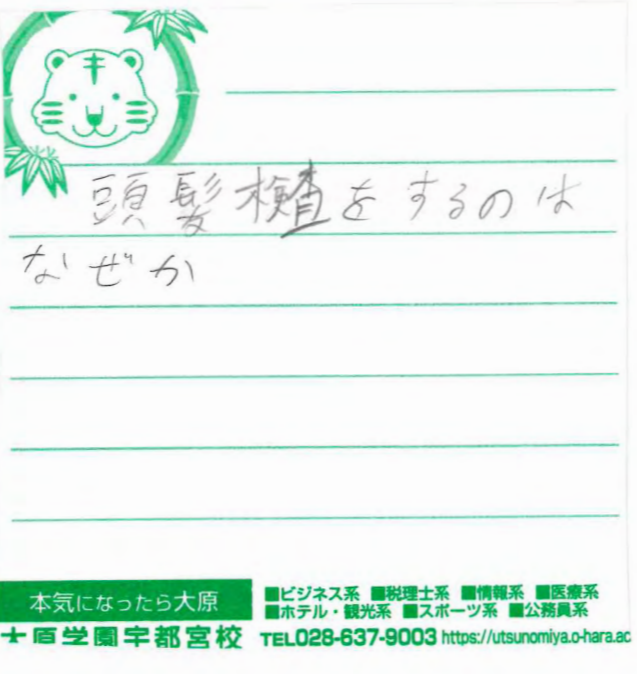 頭髪検査をするのは
なぜか
本気になったら大原
■ビジネス系 ■税理士系 ■情報系 ■医療系
■ホテル・観光系 ■スポーツ系 ■公務員系
大原学園宇都宮校 TEL028-637-9003 https://utsunomiya.o-hara.ac